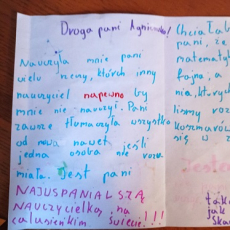 Droga pani Agnieszko!
Nauczyła mnie pani
wielu rzeczy, których inny
nauczyciel napewno by
mnie nie nauczył. Pani
zawsze tłumaczyła wszystko
od nowa nawet jeśli
jedna osoba nie rozu
miała. Jest pani
NAJUSPANIALSZĄ
NAUCZYCIELKĄ na
calusieńkim świecie!!!
Chciałab
pani, że
matematyk
fajna, a
nia, których
liśmy roz
koszmarow
się w z
taka
jak
ska